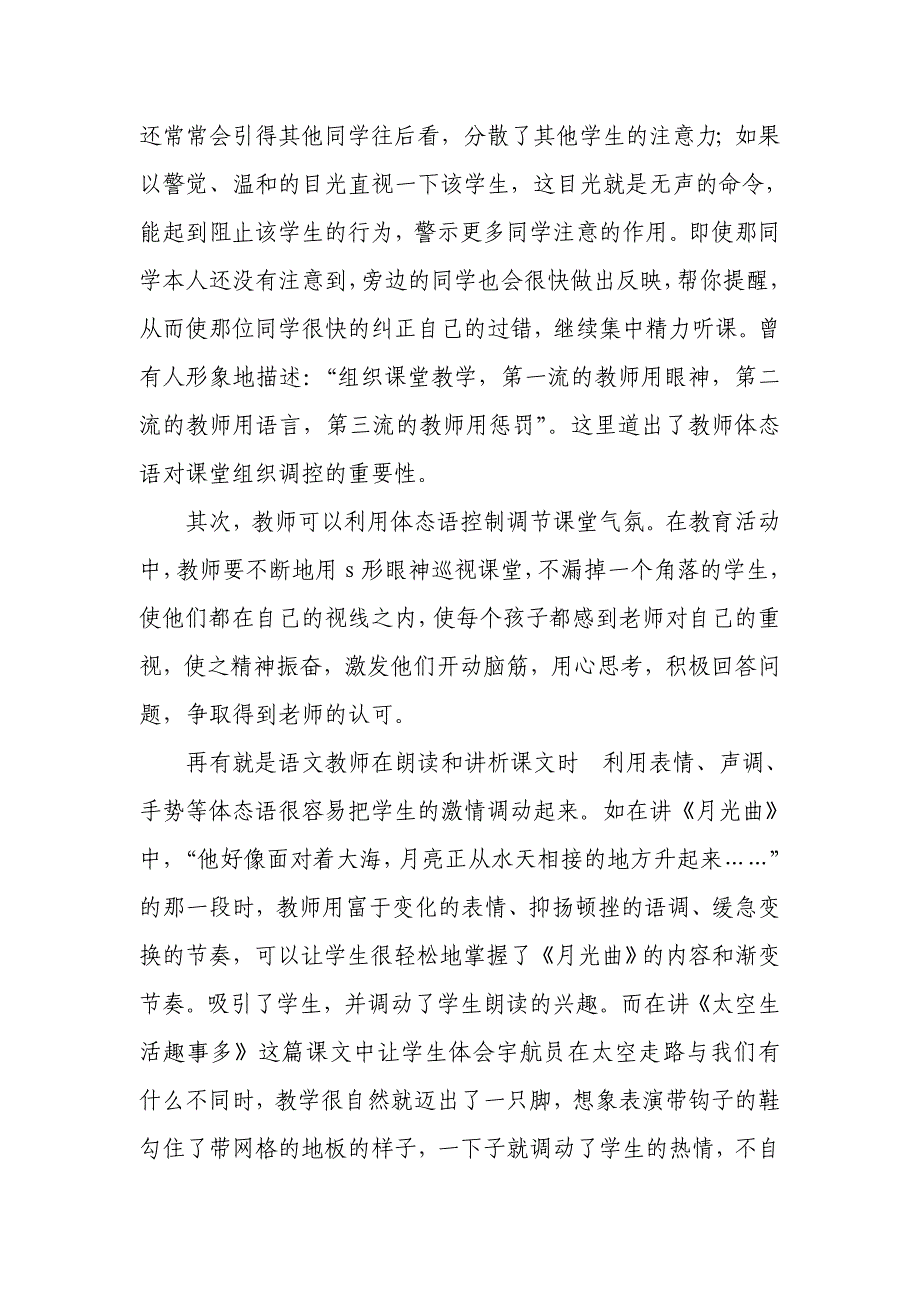 还常常会引得其他同学往后看，分散了其他学生的注意力；如果
以警觉、温和的目光直视一下该学生，这目光就是无声的命令，
能起到阻止该学生的行为，警示更多同学注意的作用。即使那同
学本人还没有注意到，旁边的同学也会很快做出反映，帮你提醒，
从而使那位同学很快的纠正自己的过错，继续集中精力听课。曾
有人形象地描述：“组织课堂教学，第一流的教师用眼神，第二
流的教师用语言，第三流的教师用惩罚”。这里道出了教师体态
语对课堂组织调控的重要性。
其次，教师可以利用体态语控制调节课堂气氛。在教育活动
中，教师要不断地用 s 形眼神巡视课堂，不漏掉一个角落的学生，
使他们都在自己的视线之内，使每个孩子都感到老师对自己的重
视，使之精神振奋，激发他们开动脑筋，用心思考，积极回答问
题，争取得到老师的认可。
再有就是语文教师在朗读和讲析课文时　利用表情、声调、
手势等体态语很容易把学生的激情调动起来。如在讲《月光曲》
中，“他好像面对着大海，月亮正从水天相接的地方升起来……”
的那一段时，教师用富于变化的表情、抑扬顿挫的语调、缓急变
换的节奏，可以让学生很轻松地掌握了《月光曲》的内容和渐变
节奏。吸引了学生，并调动了学生朗读的兴趣。而在讲《太空生
活趣事多》这篇课文中让学生体会宇航员在太空走路与我们有
什么不同时，教学很自然就迈出了一只脚，想象表演带钩子的鞋
勾住了带网格的地板的样子，一下子就调动了学生的热情，不自